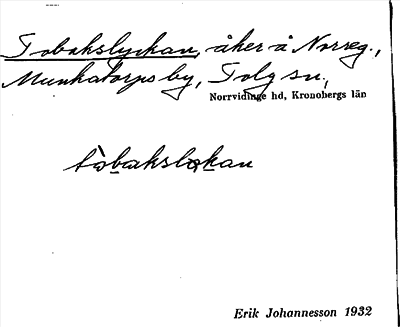 Tobakslyckan, åker å Norreg.,
Munkatorps by, Tolg sn,
Norrvidinge hd, Kronobergs län
Erik Johannesson 1932